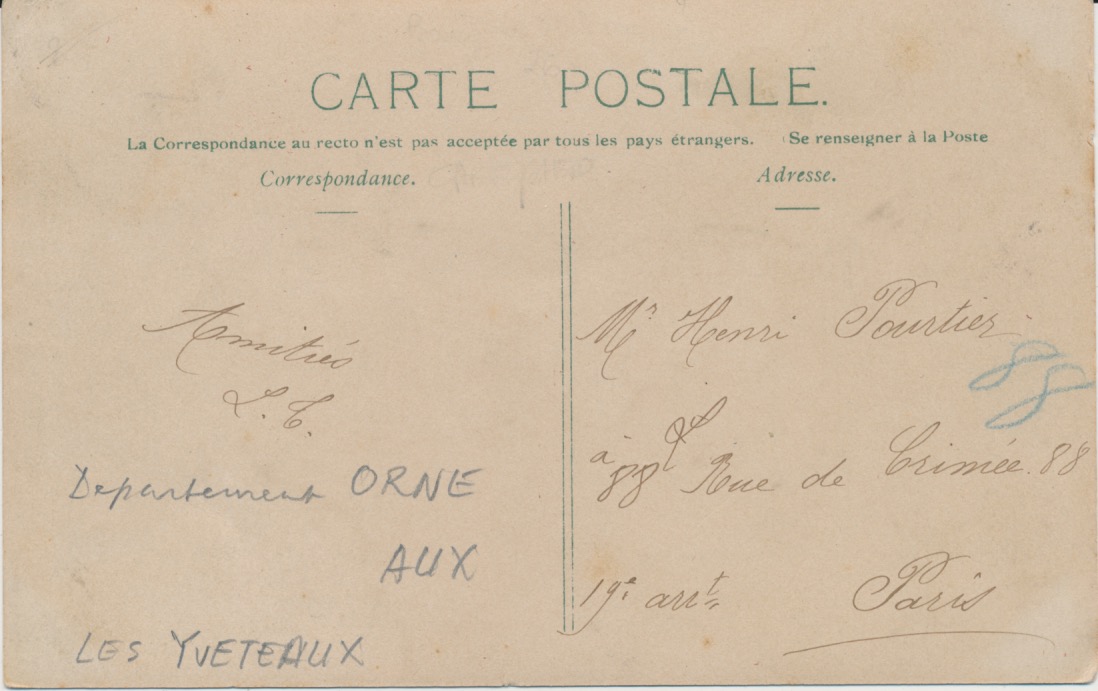 CARTE POSTALE.
La Correspondance au recto n'est pas acceptée par tous les pays étrangers. Se renseigner à la Poste
Correspondance.
Adresse.
Amitiés
L. C.
Departement ORNE
AUX
LES YVETEAUX
Mr Henri Pourtier
88
à 88 Rue de Crimée. 88
19e arrt
Paris